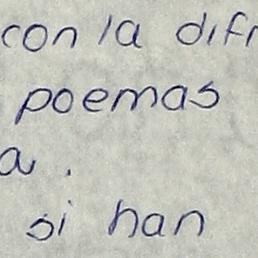 con la
poemas
a.
si han